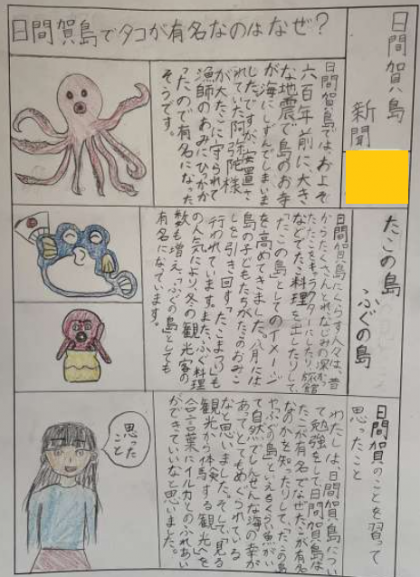 日間賀島新聞
日間賀島でタコが有名なのはなぜ?
日間賀島では、およそ
六百年前に大き
な地震で島のお寺
が海にしずんでしまいま
した。ですが、安置さ
れていた阿弥陀様
が大だこに守られて
漁師のあみにひっかか
ったので有名になった
そうです。
たこの島
ふぐの島
日間賀島にくらす人々は、昔
からたくさんとれ、なじみの深かっ
たたこをキャラクターにしたり、旅館
などでたこ料理を出したりして
「たこの島」としてのイメージ
を高めてきました。八月には
島の子どもたちがたこのおみこ
しを引き回す「たこまつり」も
行われています。また、ふぐ料理
の人気により冬の観光客の
数も増え、「ふぐの島」としても
有名になっています。
日間賀のことを習って
思ったこと
わたしは、日間賀島につい
て勉強をして、日間賀島は
たこが有名でなぜ、たこが有名
なのかを知ったりして、「たこの島
やふぐの島」といえるくらい魚がい
て自然でしんせんな海の幸が
あって、とてもめぐまれている
なと思いました。そして、見る
観光から体験する観光」を
合言葉にイルカとのふれあい
ができていいなと思いました。
思った
こと